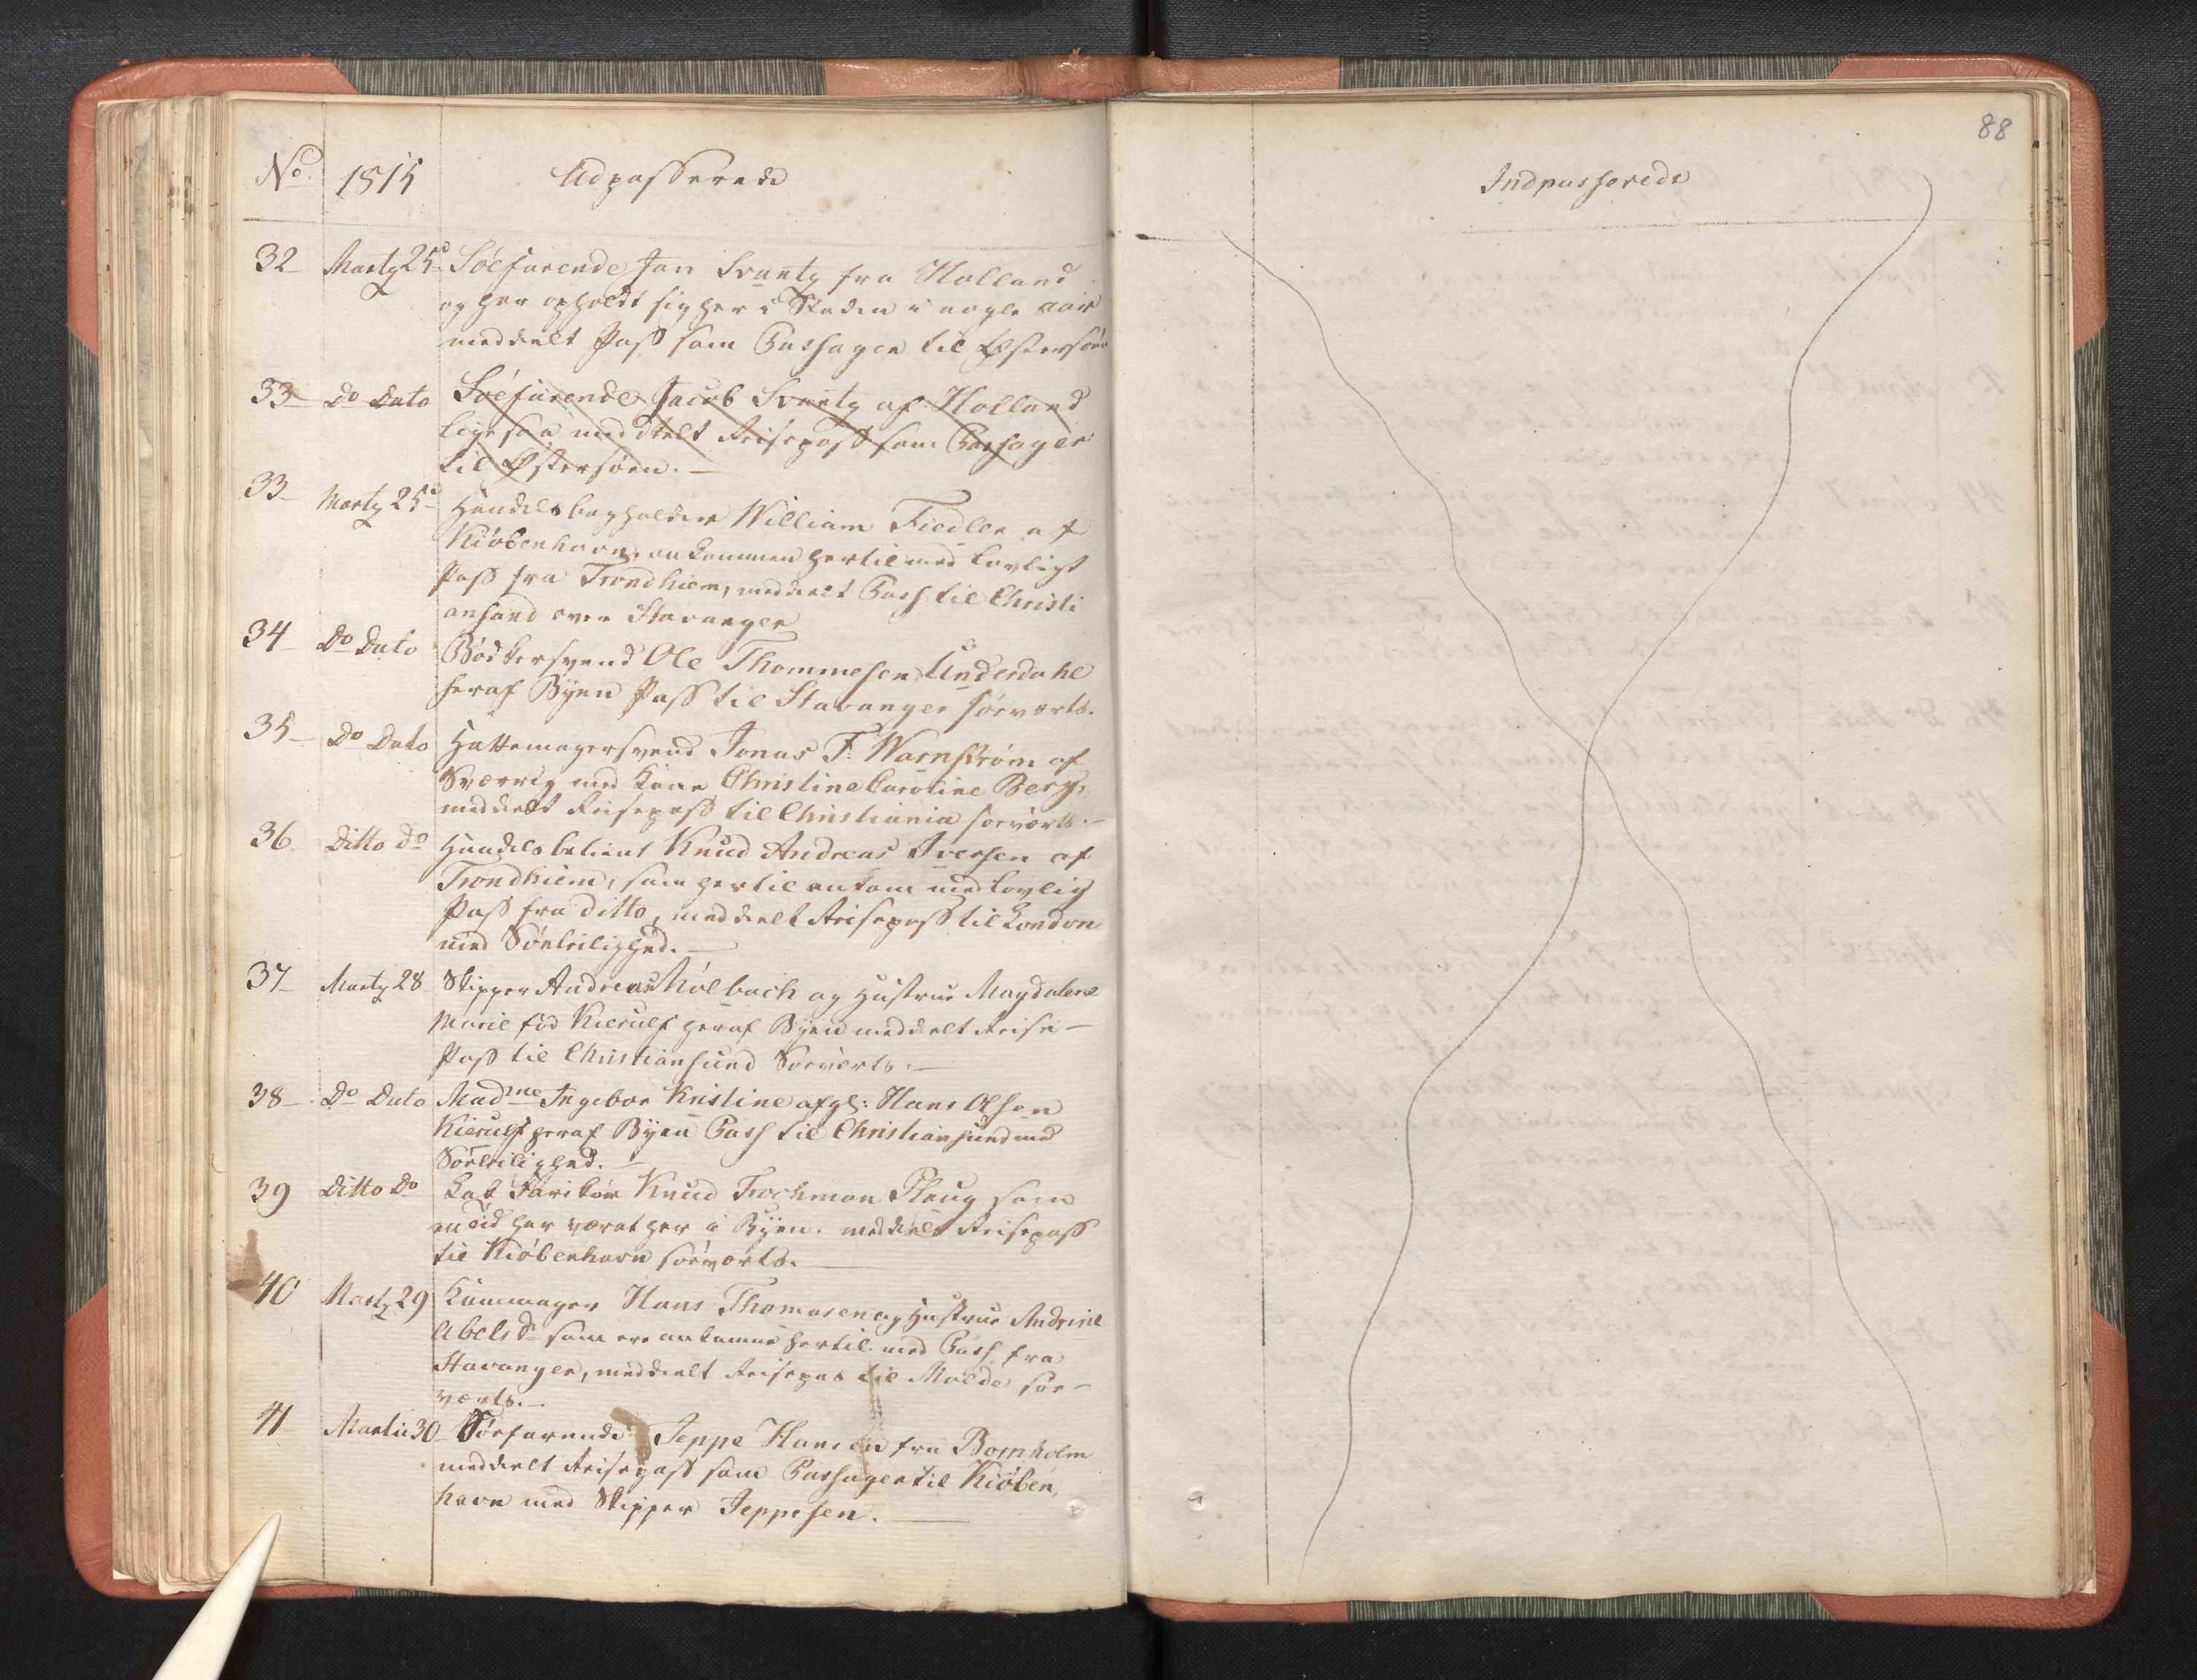 No 1815 Udpasserede
32 Marty 25d Söefarende Jan Svantz fra Holland
og har opholdt sig her i Staden i nogle aar
meddelt Pass som Passager til Østersöen
33 Do Dato Söefarende Jacob Svantz af Holland
ligesaa meddeelt Reisepass som Passager
til Østersöen.
33 Marty 25d Handelsbogholder William Fiedler af
Kiöbenhavn, ankommen hertil med lovligt
Pass fra Trondhiem, meddeelt Pass til Christi
ansand over Stavanger
34 Do Dato Bödkersvend Ole Thommesen Underdahl
heraf Byen Pass til Stavanger söeværts.
35 Do Dato Hattemagersvend Jonas F. Warnström af
Sverrig med Kone Christine Caroline Berg,
meddeelt Reisepass til Christiania söeværts.
36 Ditto Do Handelsbetient Knud Andreas Iversen af
Trondhiem, som hertil ankom med lovlig
Pass fra ditto, meddeelt Reisepass til London
med Söeleilighed.
37 Marty 28 Skipper Andreas Kölbach og Hustrue Magdalene
Marie föd Kierulf heraf Byen meddeelt Reise-
Pass til Christiansund Söeværts.
38 Do Dato Madme Ingebor Kristine afgl: Hans Olsen
Kierulf heraf Byen Pass til Christiansund med
Söeleilighed.
39 Ditto Do Knud Trochman Ploug som
en tid har været her i Byen. meddeelt Reisepass
til Kiöbenhavn söeværts.
40 Marty 29 Kammager Hans Thomasen og Hustrue Andrine
Abelsdr som ere ankomne hertil med Pass fra
Stavanger, meddeelt Reisepas til Molde söe-
værts.
41 Martii 30 Söefarende Jeppe Hansen fra Bornholm
meddeelt Reisepass som Passager til Kiöben
havn med Skipper Jeppesen.
88
Indpasserede